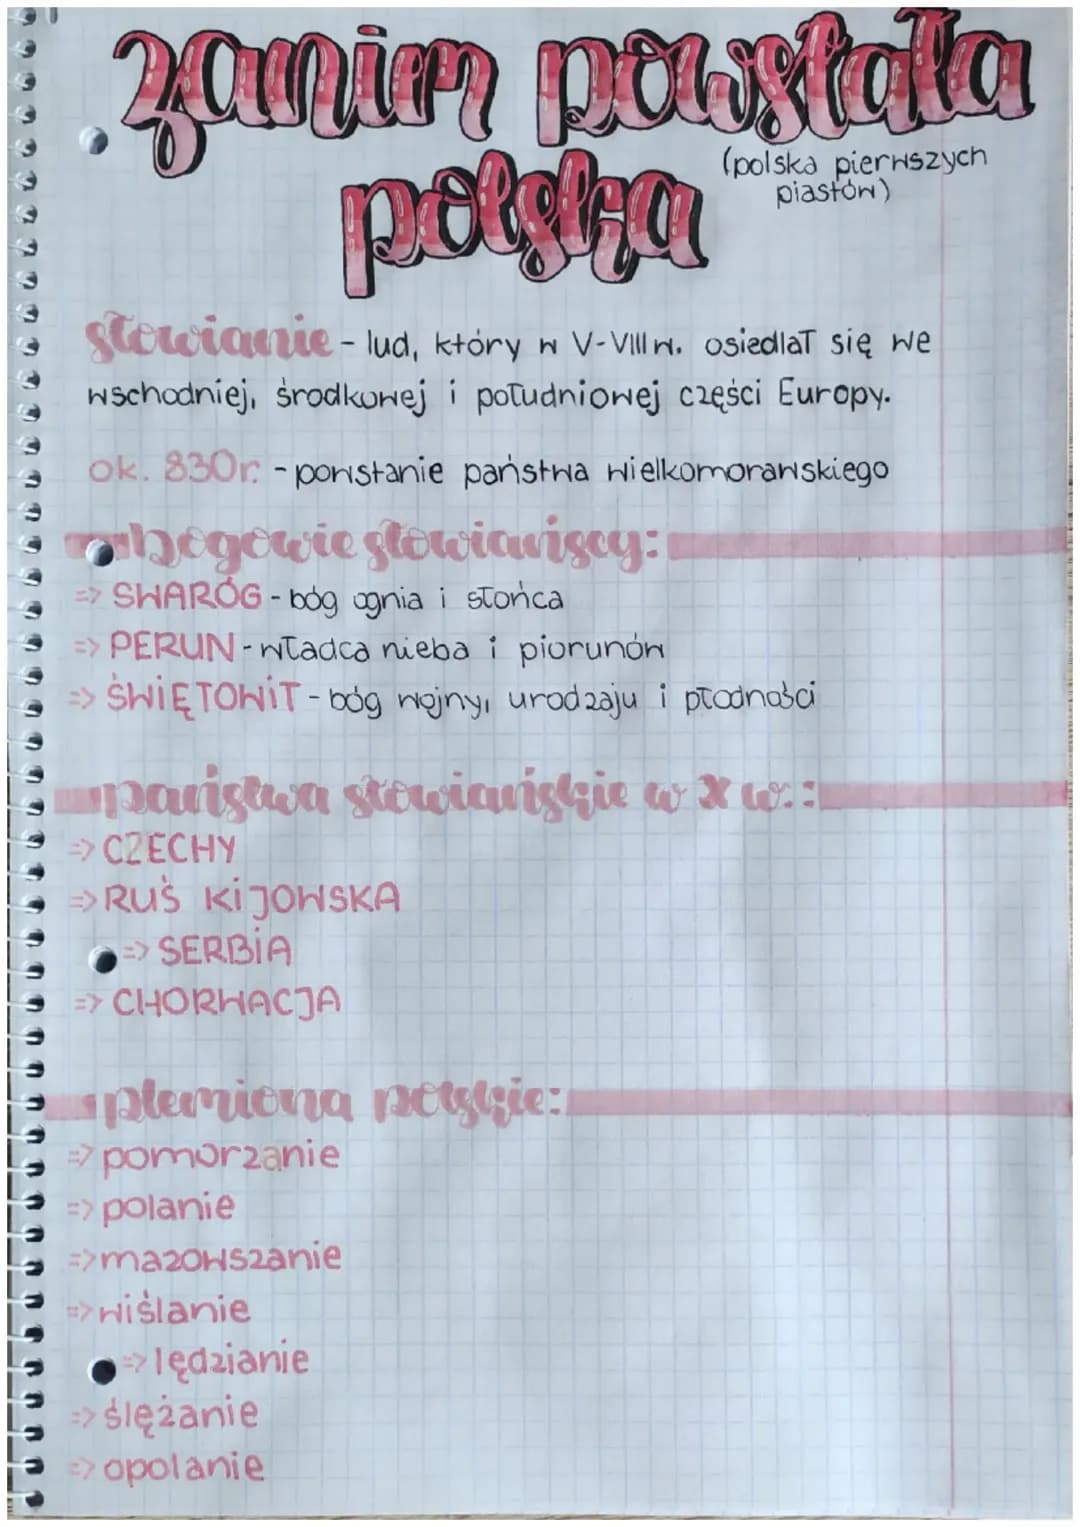 zanim powstała
(polska pierwszych
piastów)
polska
słowianie - lud, który w V-VIII w. osiedlał się we
wschodniej, środkowej i południowej części Europy.
ok. 830r. - powstanie państwa wielkomorawskiego
bogowie słowiańscy:
=> SWARÓG - bóg ognia i słońca
=> PERUN - władca nieba i piorunów
=> ŚWIĘTOWIT - bóg wojny, urodzaju i płodności
państwa słowiańskie w X w.:
=> CZECHY
=> RUŚ KIJOWSKA
=> SERBIA
=> CHORWACJA
plemiona polskie:
=> pomorzanie
=> polanie
=> mazowszanie
=> wiślanie
=> lędzianie
=> ślężanie
=> opolanie